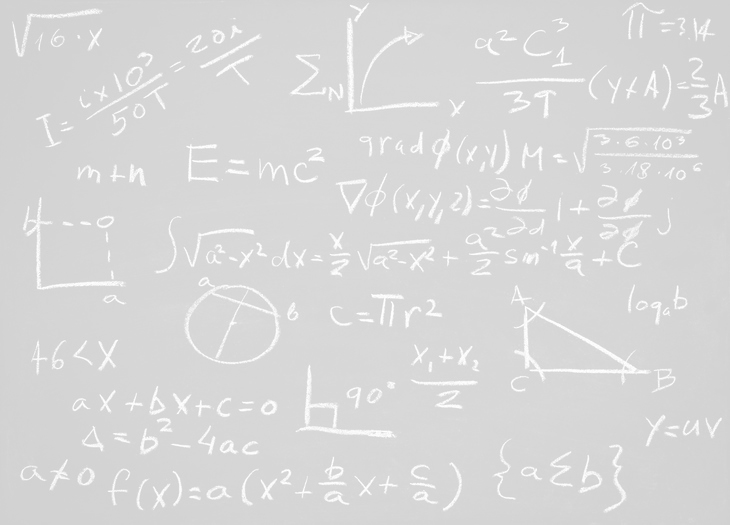 √16·x
I = i×10³/50T = 20i/T
Σ_N
y
x
a²C₁³/39
π = 3.14
(y+A) = 2/3 A
m+n
E=mc²
grad ϕ(x,y)
M = √(3·6·10³/3·18·10⁶)
∇ϕ(x,y,z) = ∂ϕ/∂d i + ∂ϕ/∂ϕ j
∫√a²-x² dx = x/2 √a²-x² + a²/2 sin⁻¹ x/a + C
a
a
b
c=πr²
A
C
B
logₐb
46<x
x₁+x₂/2
90°
ax+bx+c=0
Δ=b²-4ac
y=uv
a≠0
f(x)=a(x²+b/a x+c/a)
{a≤b}